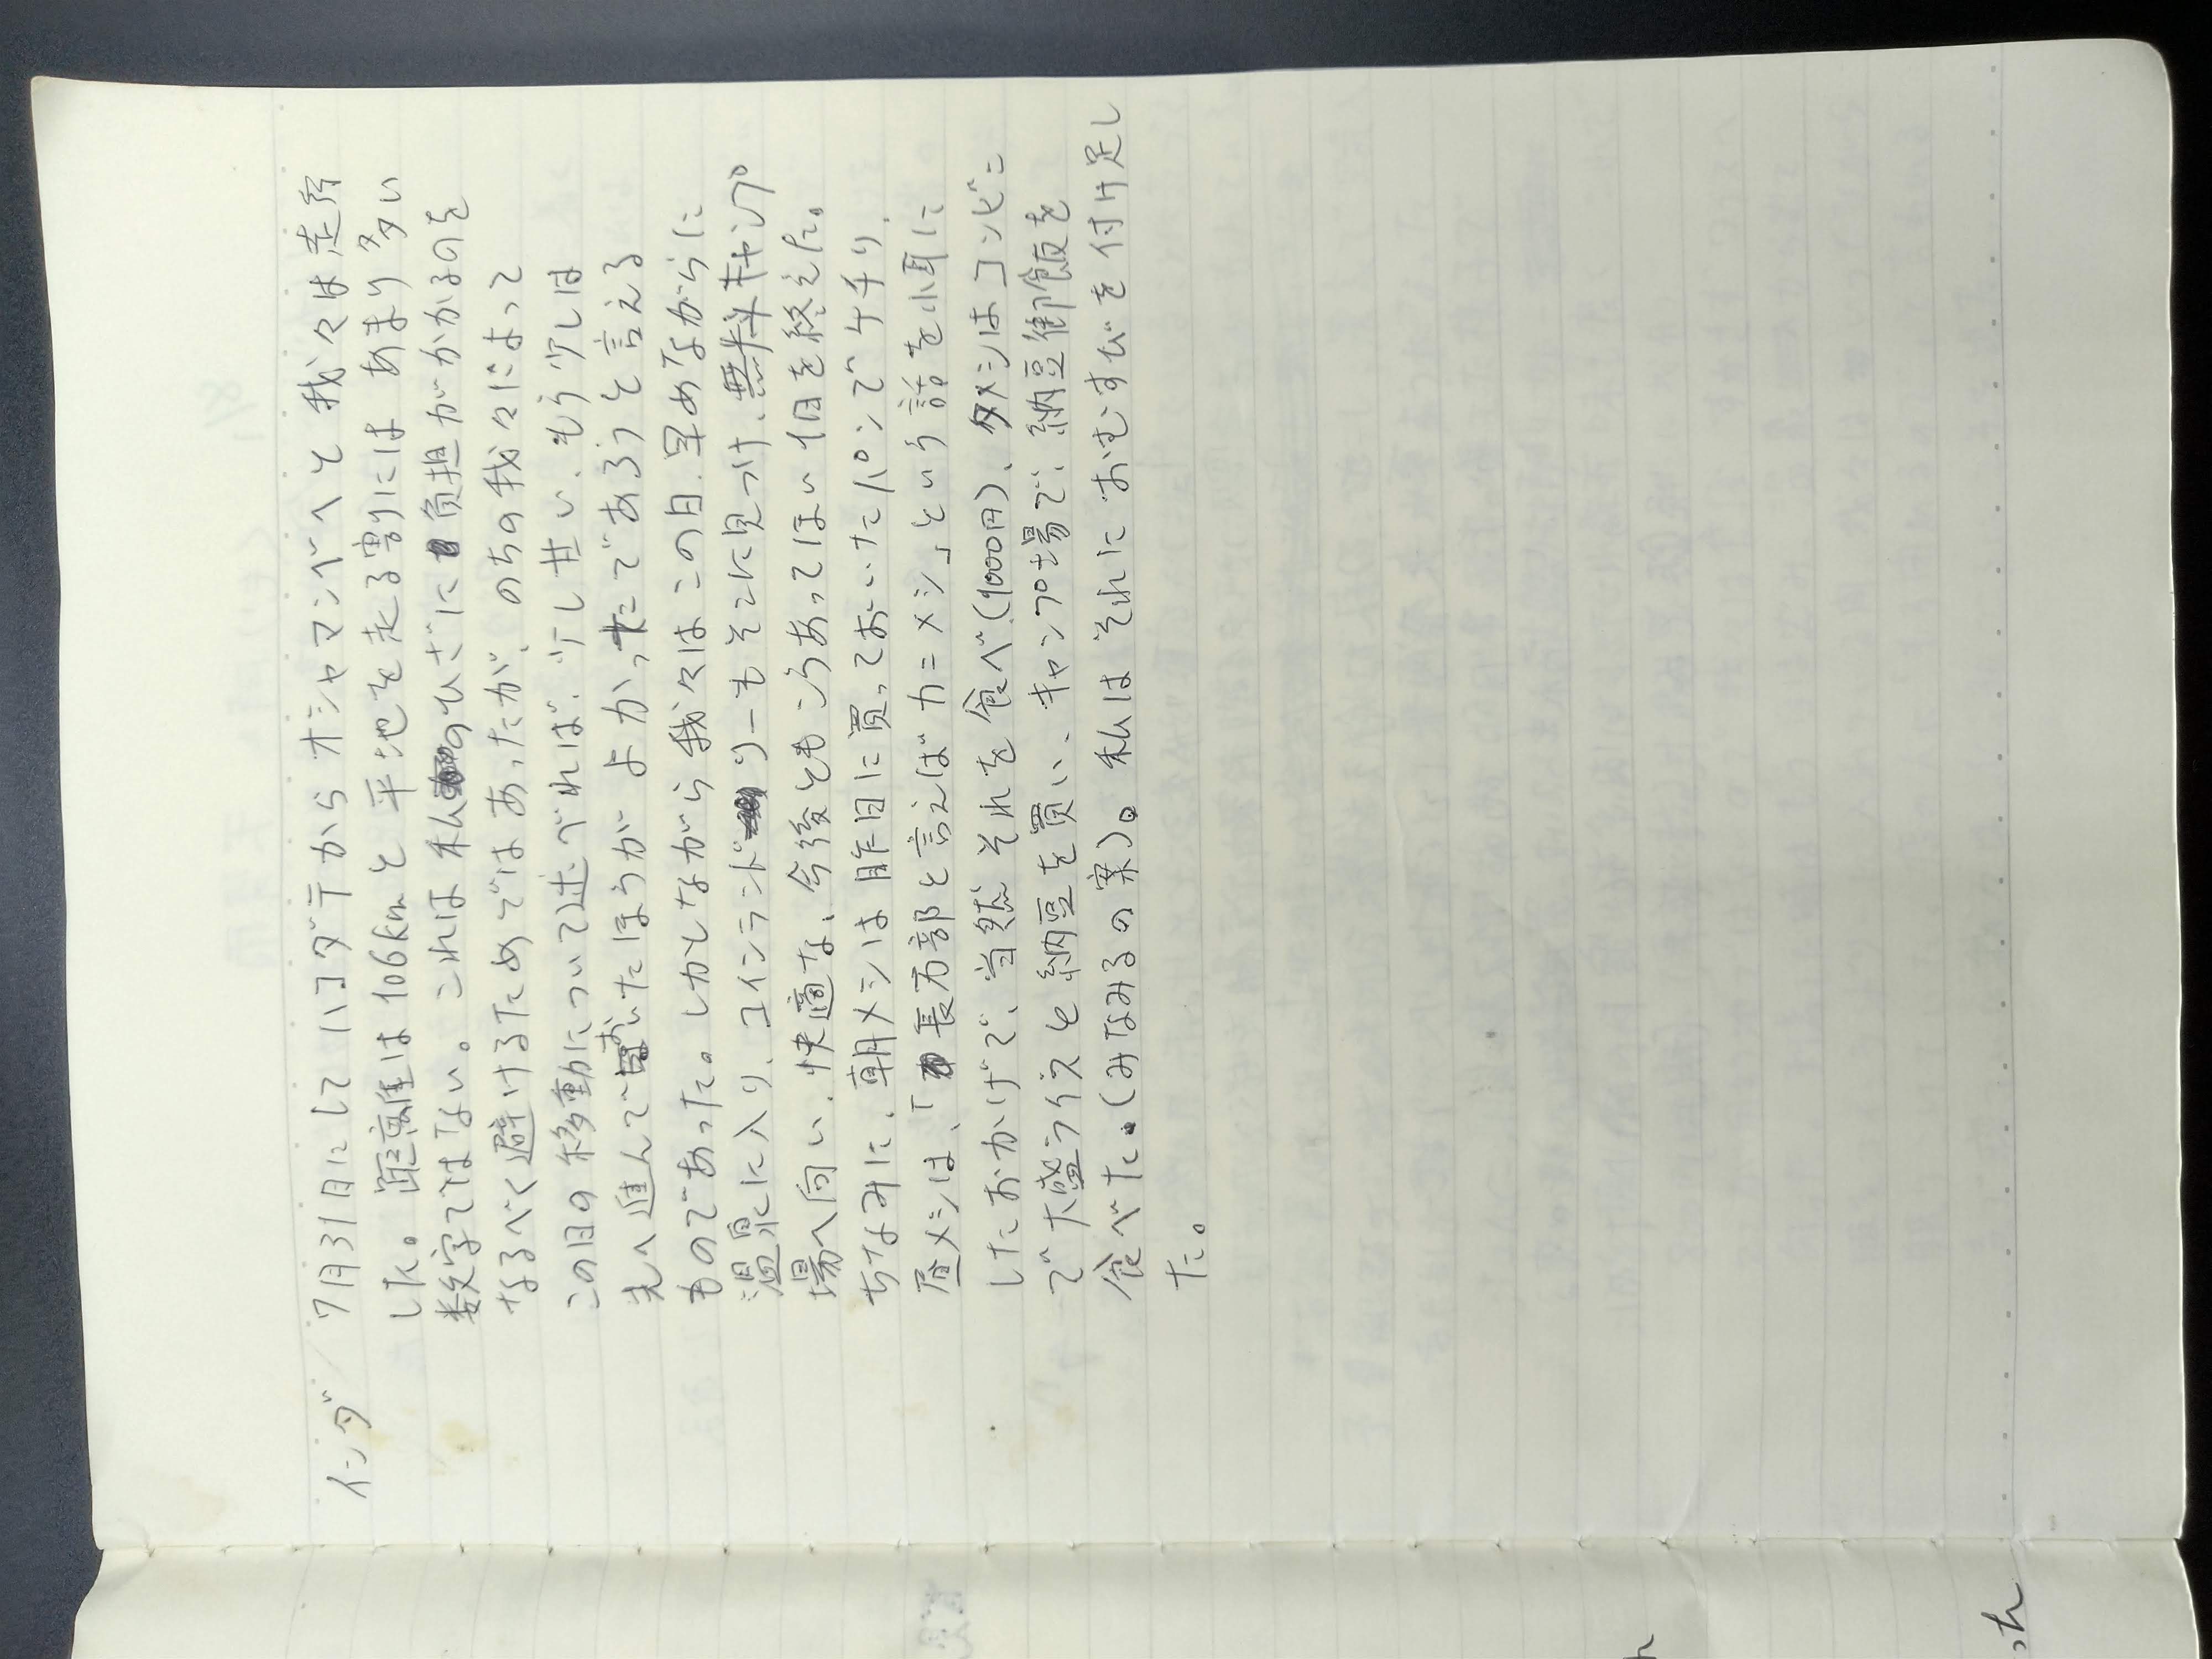 インダ/7月31日にして ハコダテからオシャマンベへと我々は走行
した。距離は106kmと平地を走る割りには あまり多い
数字ではない。これは私のひざに負担がかかるのを
なるべく避けるためではあったが、のちの我々によって
この日の移動について述べれば、少し甘い、もう少しは
先へ進んでおいたほうが よかったであろうと言える
ものであった。しかしながら我々はこの日、早めながらに
温泉に入り、コインランドリーもそこに見つけ、無料キャンプ
場へ向い、快適な、今後ともこうあってほしい1日を終えた。
ちなみに、朝メシは昨日に買っておいたパンでケチり、
昼メシは、「長万部と言えばカニメシ」という話を小耳に
したおかげで、当然それを食べ(1000円)、夕メシはコンビニ
で大盛ライスと納豆を買い、キャンプ場で、納豆御飯を
食べた。(みなみるの案)。私はそれにおむすびを付け足し
た。